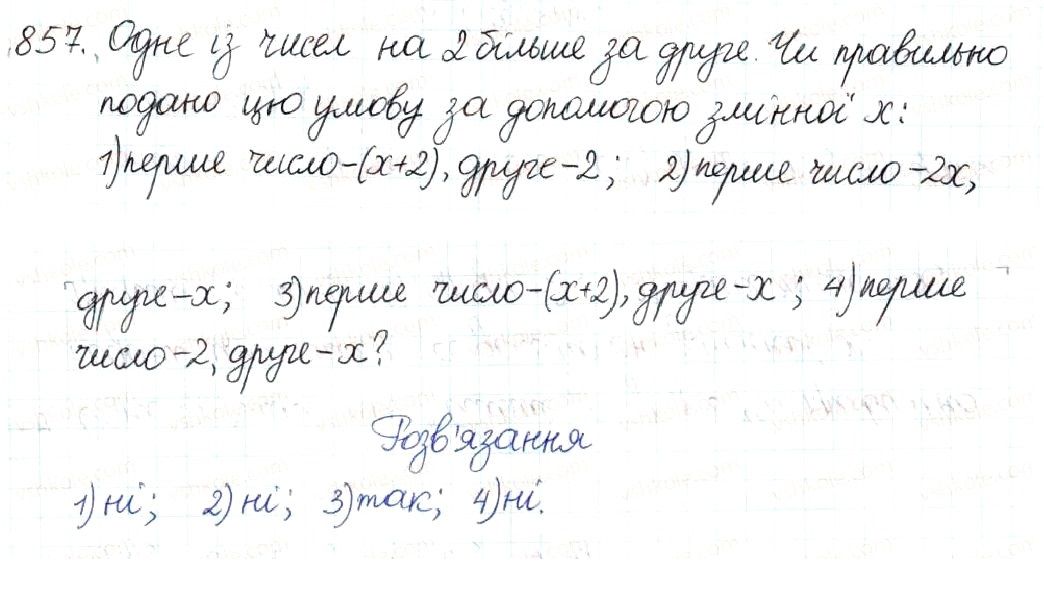 857. Одне із чисел на 2 більше за друге. Чи правильно
подано цю умову за допомогою змінної x:
1) перше число-(x+2), друге-2; 2) перше число-2x,
друге-x; 3) перше число-(x+2), друге-x; 4) перше
число-2, друге-x?
Розв'язання
1) ні; 2) ні; 3) так; 4) ні.